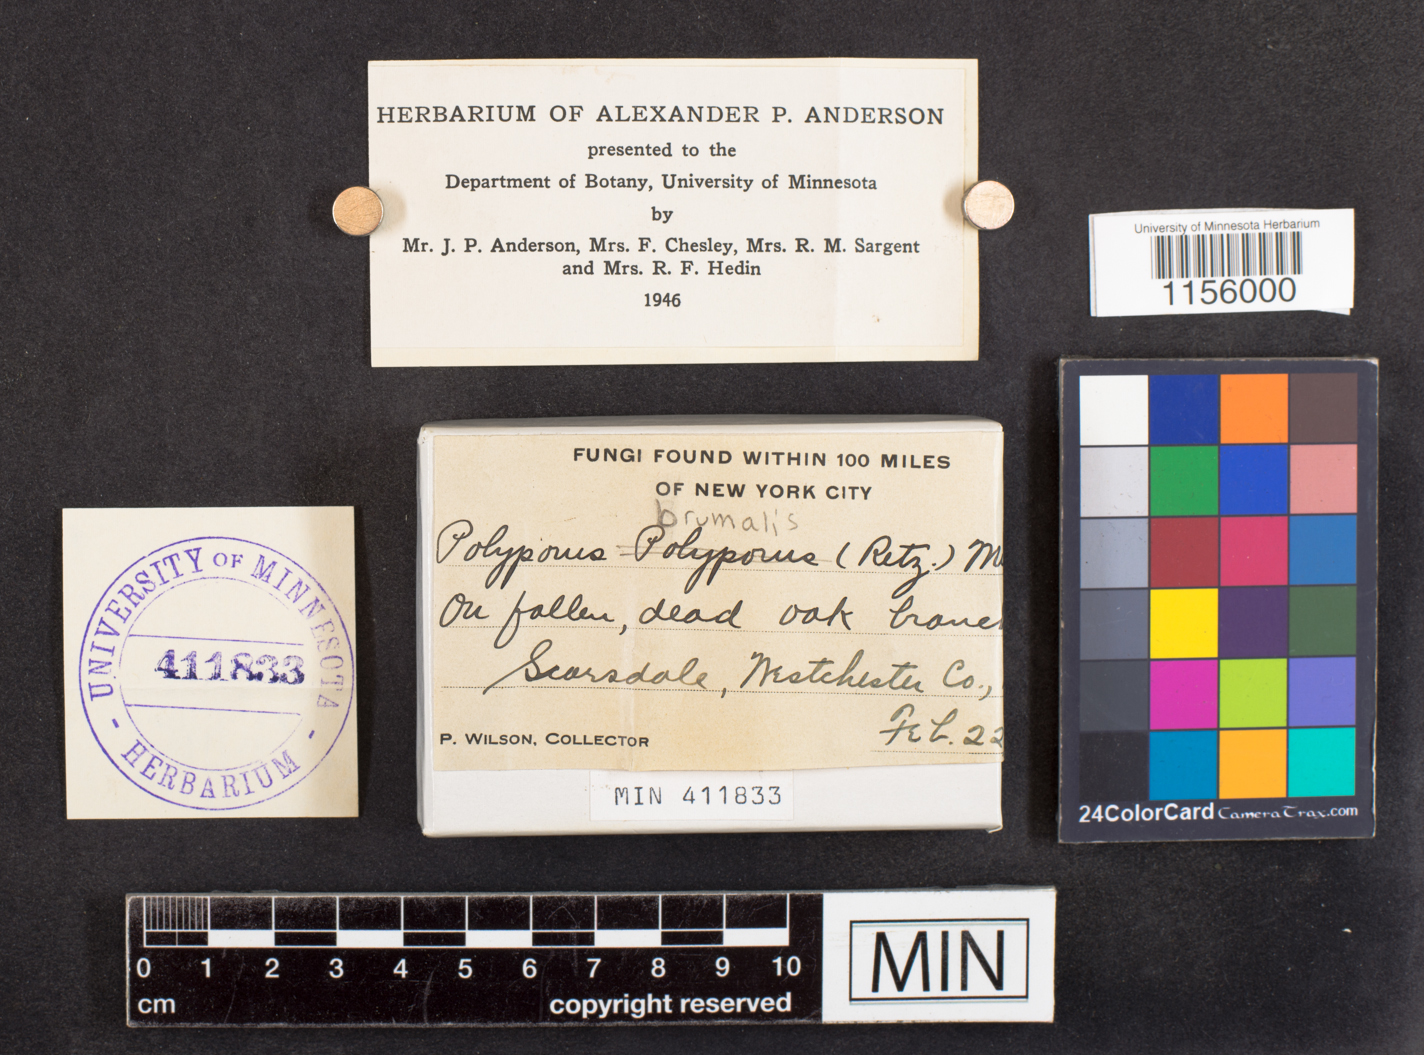 HERBARIUM OF ALEXANDER P. ANDERSON
presented to the
Department of Botany, University of Minnesota
by
Mr. J. P. Anderson, Mrs. F. Chesley, Mrs. R. M. Sargent
and Mrs. R. F. Hedin
1946
University of Minnesota Herbarium
1156000
FUNGI FOUND WITHIN 100 MILES
OF NEW YORK CITY
brumalis
Polyporus Polyporus (Retz.) M
On fallen, dead oak branc
Scarsdale, Westchester Co.,
Feb. 22
P. WILSON, COLLECTOR
MIN 411833
- UNIVERSITY OF MINNESOTA -
411833
HERBARIUM
24ColorCard CameraTrax.com
0 1 2 3 4 5 6 7 8 9 10
cm copyright reserved
MIN